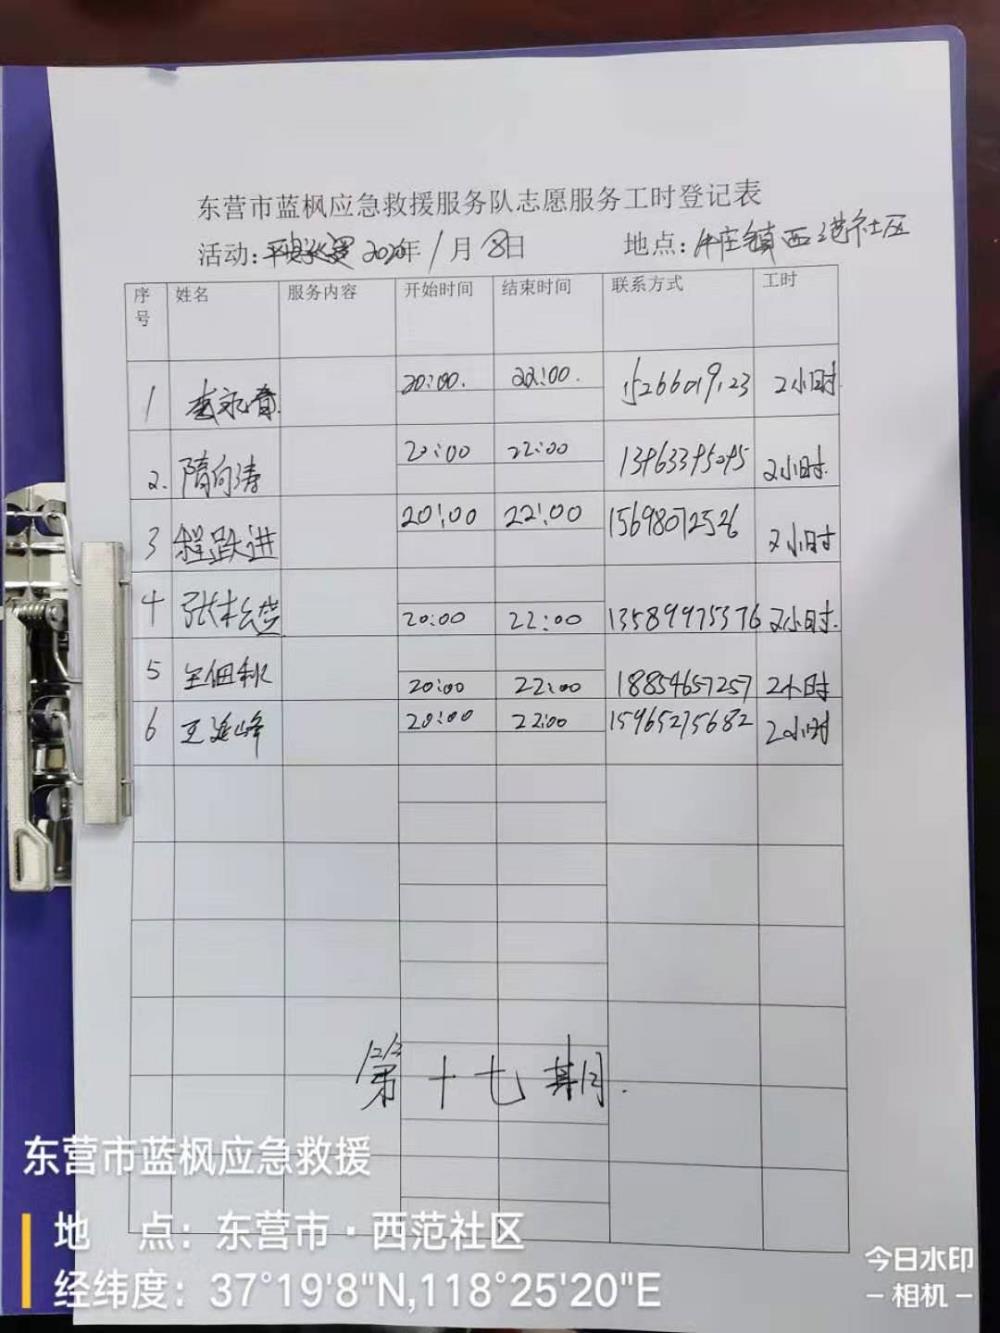 东营市蓝枫应急救援服务队志愿服务工时登记表
活动: 2020年1月8日 地点: 牛庄镇西范社区
序号 姓名 服务内容 开始时间 结束时间 联系方式 工时
1 李永春 20:00. 22:00. 15266019123 2小时
2. 隋向涛 20:00 22:00 13963395095 2小时.
3 程跃进 20:00 22:00 15698072526 2小时
4 张 20:00 22:00 13589975376 2小时.
5 王佃秋 20:00 22:00 18854657257 2小时
6 王延峰 20:00 22:00 15965275682 2小时
第十七期.
东营市蓝枫应急救援
地 点：东营市·西范社区
经纬度：37°19'8"N,118°25'20"E
今日水印
-相机-